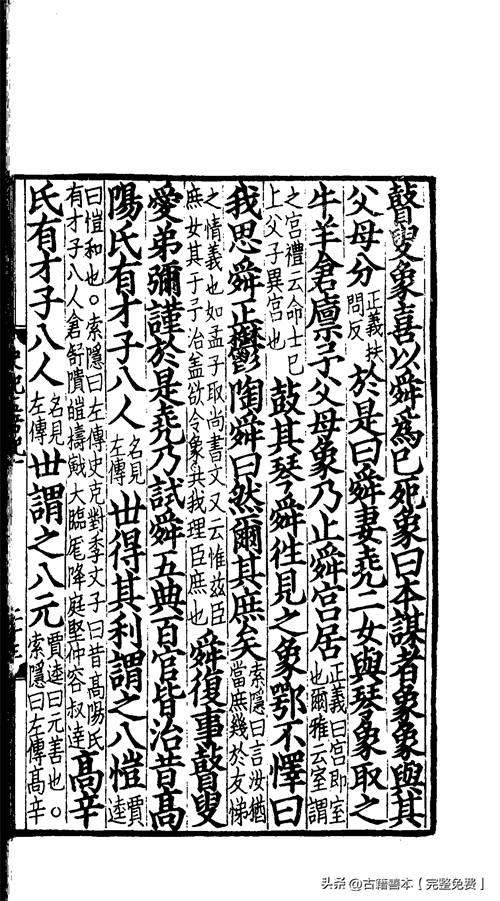 瞽叟象喜以舜爲已死象曰本謀者象象與其
父母分正義扶問反於是曰舜妻堯二女與琴象取之
牛羊倉廩予父母象乃止舜宫居正義曰宫即室也爾雅云室謂
之宫禮云命士已上父子異宫也鼓其琴舜徃見之象鄂不懌曰
我思舜正鬱陶舜曰然爾其庶矣索隱曰言汝猶當庶幾於友悌
之情義也如孟子取尚書文又云惟兹臣庶女其于予治盖欲令象共我理臣庶也舜復事瞽叟
愛弟彌謹於是堯乃試舜五典百官皆治昔髙
陽氏有才子八人名見左傳丗得其利謂之八愷賈逵
曰愷和也。索隱曰左傳史克對季文子曰昔髙陽氏有才子八人倉舒隤敳檮戭大臨尨降庭堅仲容叔達髙辛
氏有才子八人名見左傳丗謂之八元賈逵曰元善也。索隱曰左傳髙辛
头条@古籍善本【完整免费】